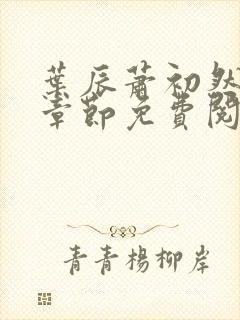 葉辰蕭初然
章節免費閱
青青楊柳岸